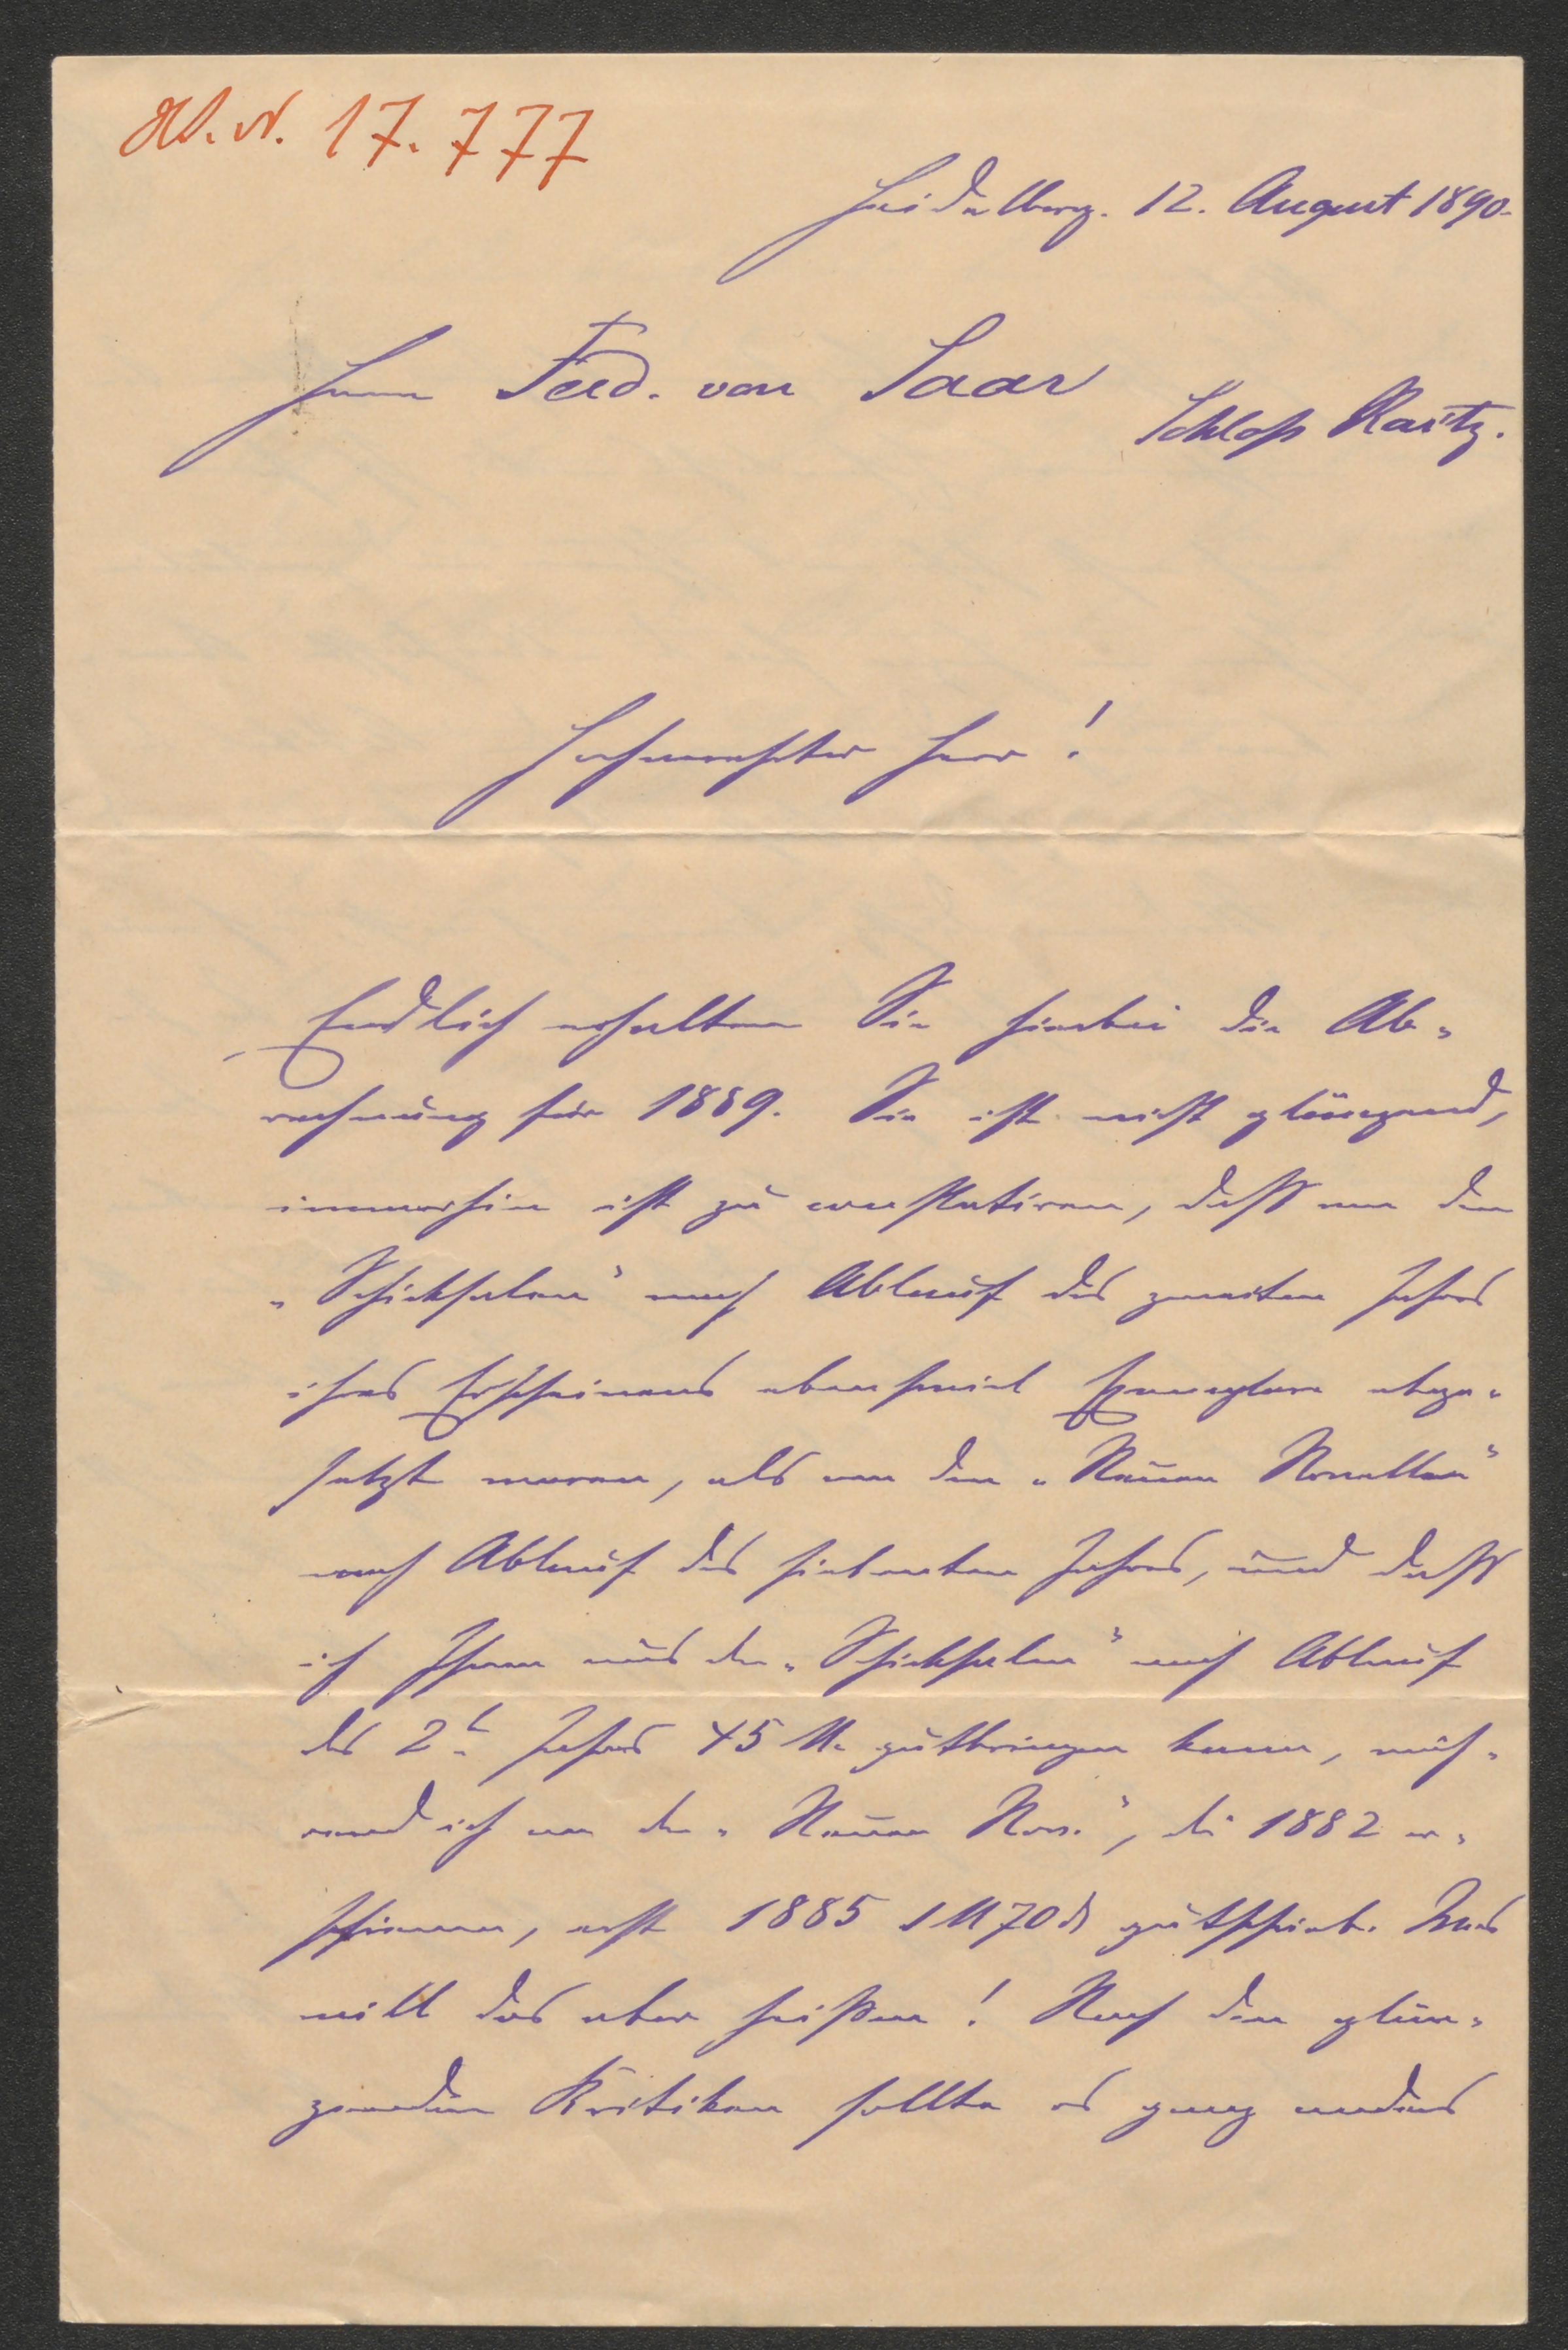 H.I.N. 17.777
Heidelberg. 12. August 1890.
Herrn Ferd. von Saar
Schloß Raitz.
Hochverehrter Herr!
Endlich erhalten Sie hierbei die Ab-
rechnung für 1889. Sie ist nicht glänzend,
immerhin ist zu constatiren, dass von den
„Schicksalen" nach Ablauf des zweiten Jahres
ihres Erscheinens ebensoviel Exemplare abge-
setzt waren, als von den „Neuen Novellen"
nach Ablauf des siebenten Jahres, und dass
ich Ihnen aus den „Schicksalen" nach Ablauf
des 2t. Jahres 45 M. gutbringen kann, wäh-
rend ich von den „Neuen Nov.", die 1882 er-
schienen, erst 1885 1 M 70 ₰ gutschrieb. Was
will das aber heißen! Nach den glän-
zenden Kritiken sollte es ganz anders